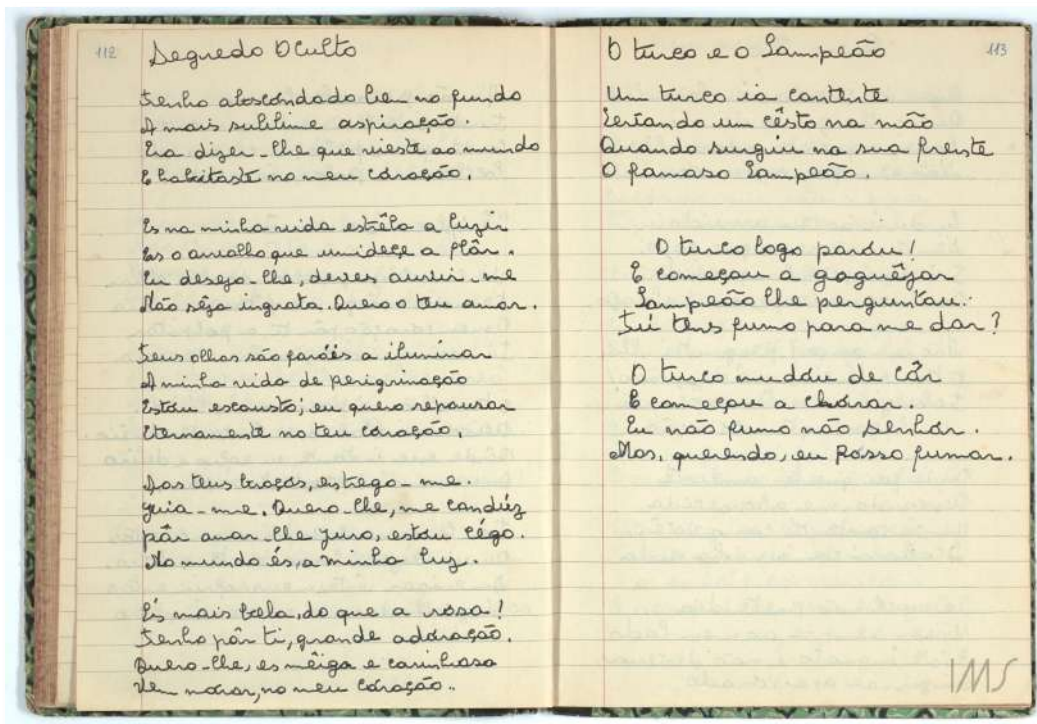 112
Segredo Oculto
Tenho aboscondado bem no fundo
A mais sublime aspiração.
Era dizer-lhe que vieste ao mundo
E habitaste no meu coração.
Es na minha vida estrêla a luzir
Es o orvalho que umideçe a flôr.
Eu desejo-lhe, deves auvir-me
Não sêja ingrata. Quero o teu amor.
Teus olhos são faróes a iluminar
A minha vida de perigrinação
Estou escausto; eu quero repousar
Eternamente no teu coração.
Aos teus braços, entrego-me.
guia-me. Quero-lhe, me condúz
pôr amar-lhe Juro, estou cégo.
No mundo és, a minha luz.
És mais bela, do que a rosa!
Tenho pôr ti, grande adoração.
Quero-lhe, es mêiga e carinhosa
Vem morar, no meu coração..
113
O turco e o Lampeão
Um turco ia contente
Levando um cêsto na mão
Quando surgiu na sua frente
O famoso Lampeão.
O turco logo parou!
E começou a goguêjar
Lampeão lhe perguntou..
Tú tens fumo para me dar?
O turco muddu de côr
E começou a chorar.
Eu não fumo não senhor.
Mas, querendo, eu posso fumar.
IMS